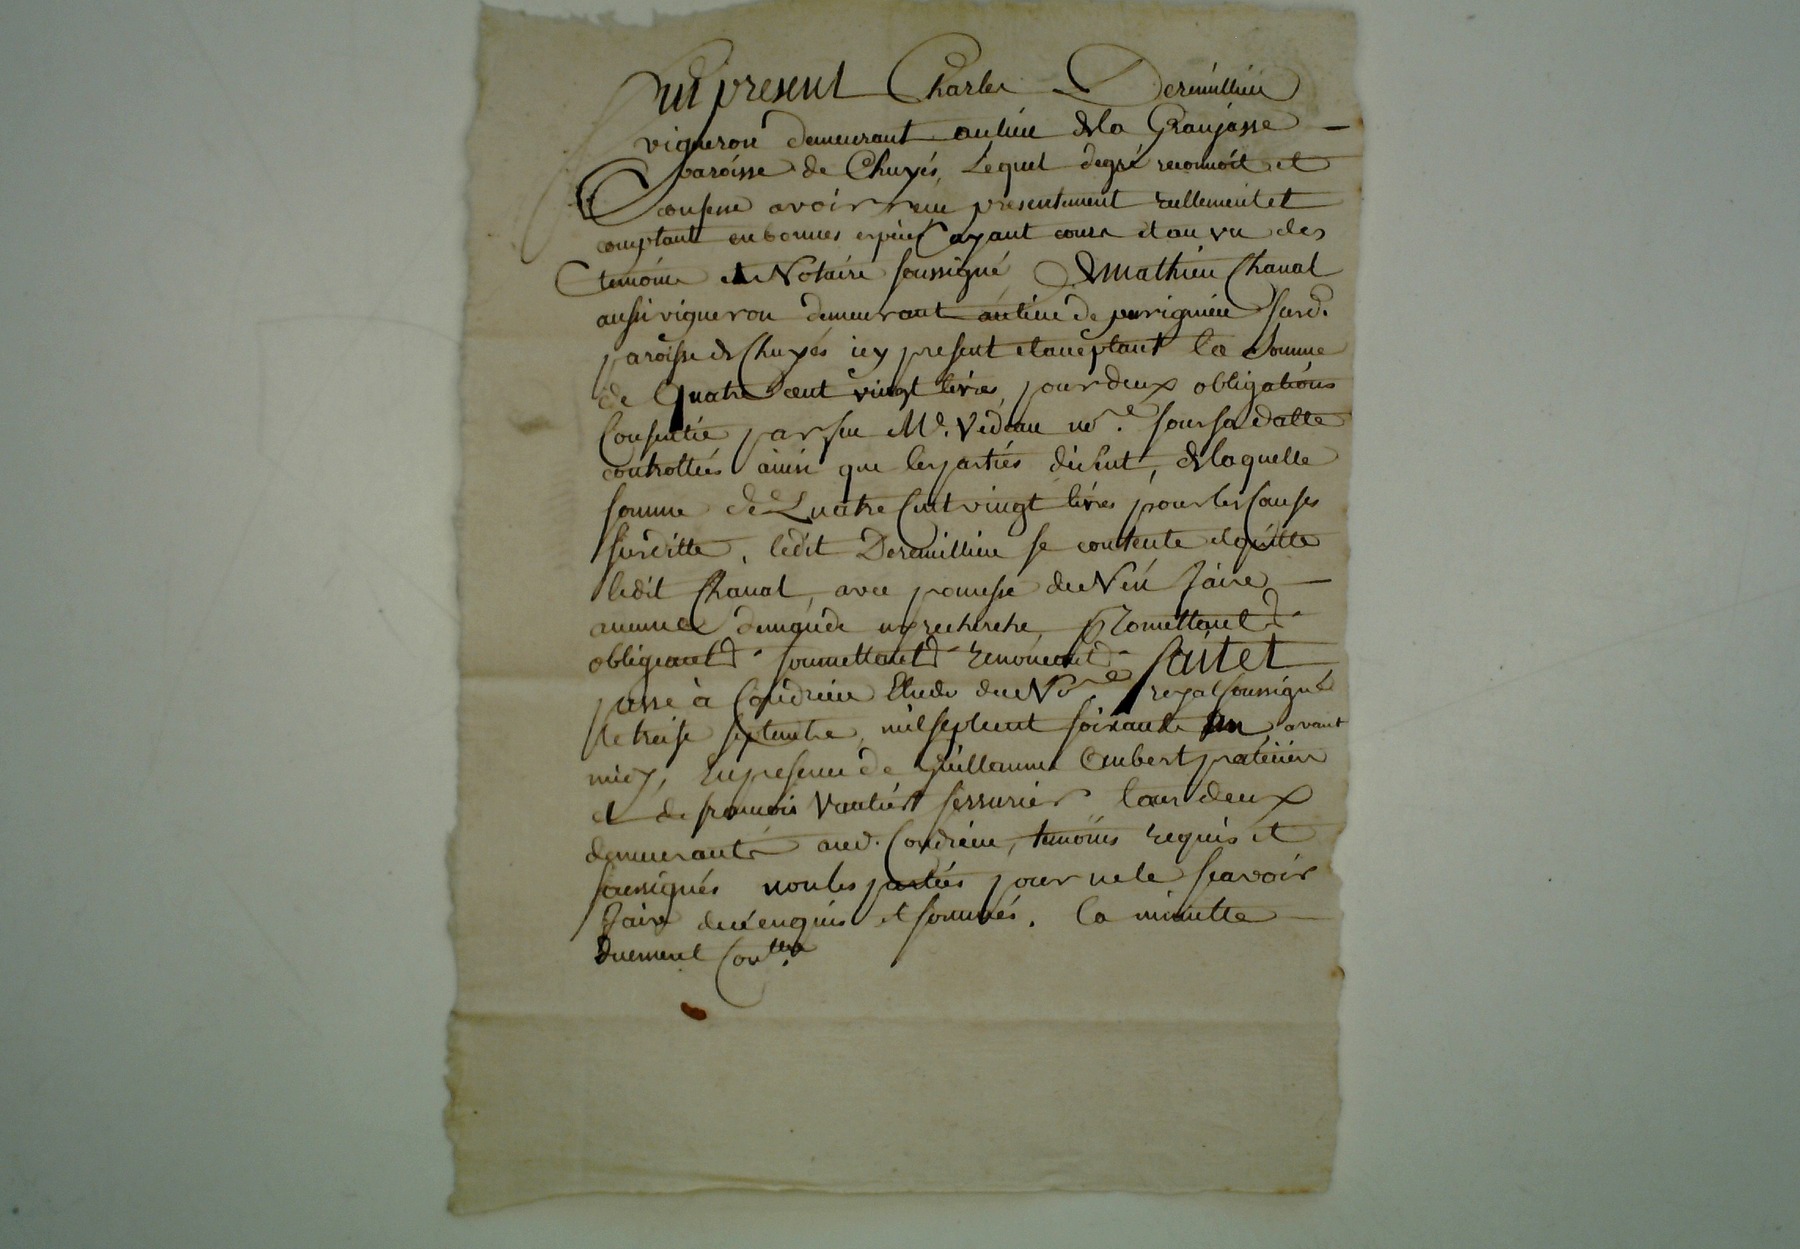 fut present Charles Dermillieu
vigneron demeurant au lieu de la Granjasse
paroisse de Chuyés, Lequel degré reconnoit et
confesse avoir reçu presentement reellement et
comptant en bonnes especes ayant cours et au vu des
temoins et Notaire soussigné, de mathieu Chaval
aussi vigneron demeurant au lieu de surd.
paroisse de Chuyés icy present et aceptant la somme
de Quatre cent vingt livres, pour deux obligations
Consentie par feu Me. Vedeau nore. sous sa datte
controllées ainsi que les parties disent, de laquelle
somme de Quatre Cent vingt livres pour les causes
surditte, ledit Dermillieu se contente et quitte
ledit Chaval, avec promesse de N'en faire
aucune demande ny recherche, Promettant d.
obligeant d. soumettant d. renonceant d. fait et
passé à Condrieu Etude du Nore. royal soussigné
le treise septembre, mil sept cent soixante un, avant
midy, En presence de Guillaume Aubert praticien
et de francois Vautier serrurier tous deux
demeurants aud. Condrieu, temoins requis et
soussignés non les parties pour ne le scavoir
faire de ce enquis et sommés. la minutte
duement Contlée